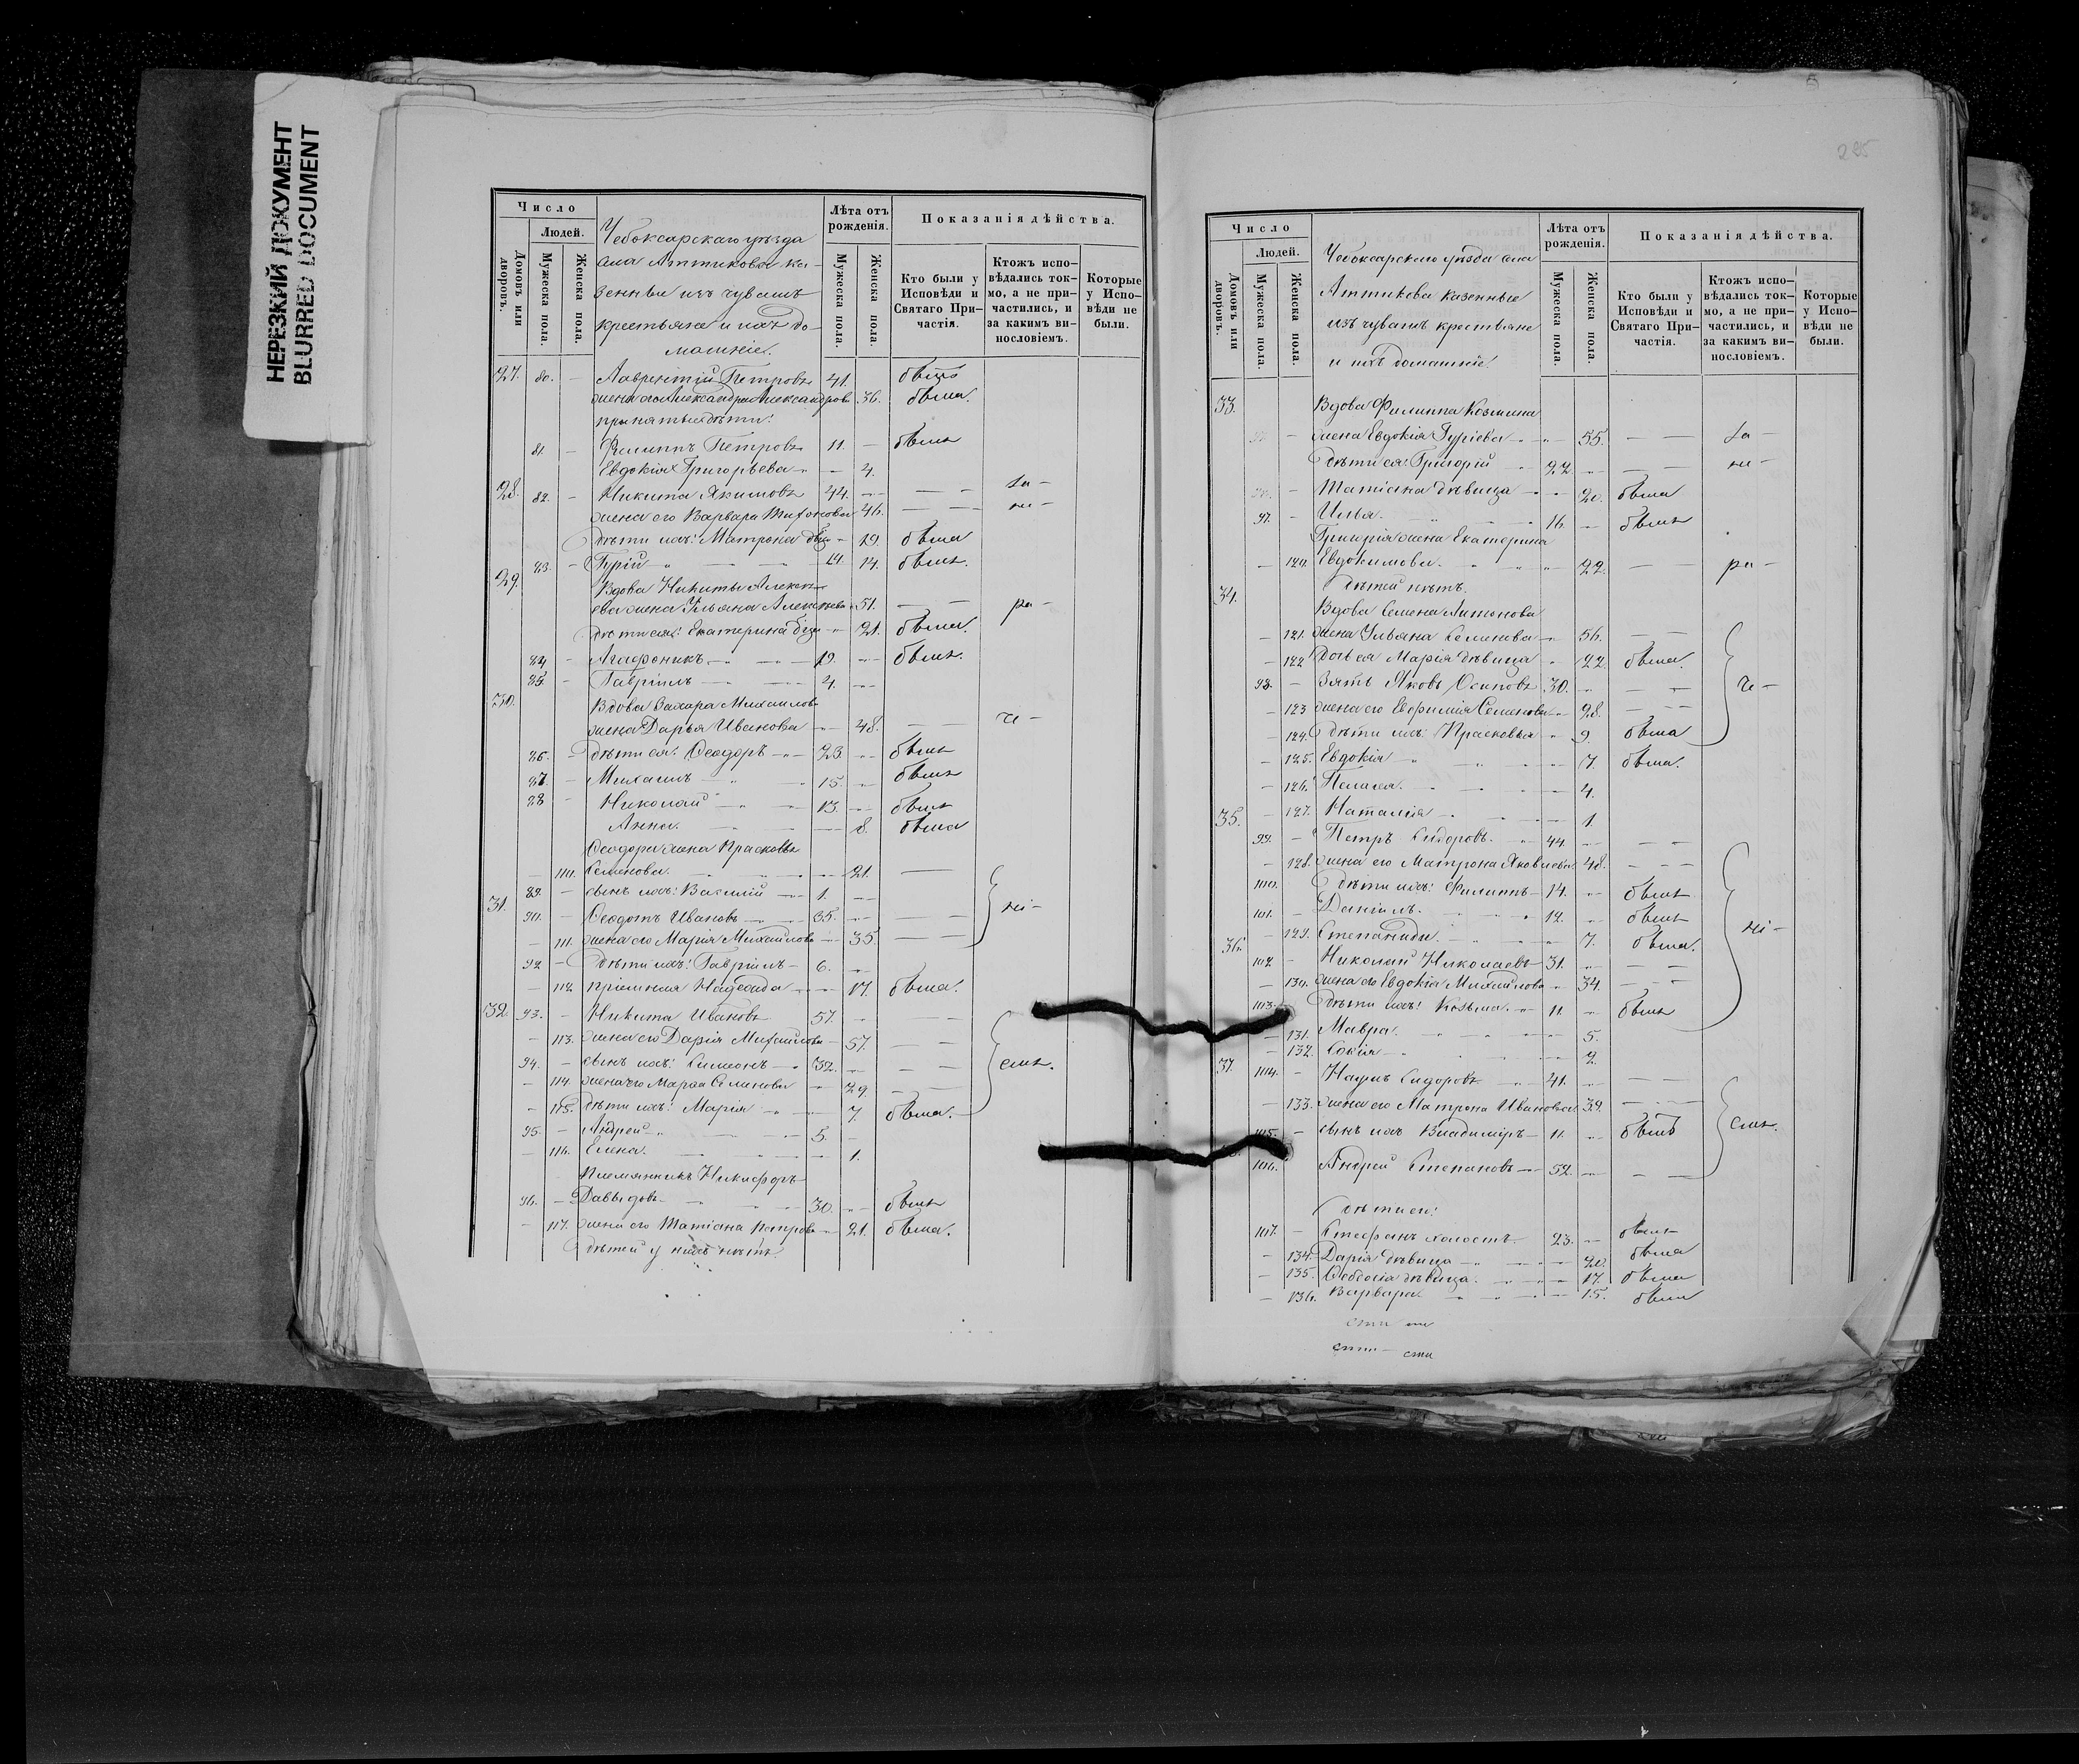 НЕРЕЗКИЙ ДОКУМЕНТ
BLURRED DOCUMENT
Число
Людей.
Домовъ или дворовъ.
Мужеска пола.
Женска пола.
Чебоксарскаго уѣзда
села Аттикова ка-
зенные изъ чувашъ
крестьяне и ихъ до-
машніе.
Лѣта отъ рожденія.
Мужеска пола.
Женска пола.
Показанія дѣйства.
Кто были у Исповѣди и Святаго При-частія.
Ктожъ испо-вѣдались ток-мо, а не при-частились, и за какимъ ви-нословіемъ.
Которые у Испо-вѣди не были.
27. 80. - Лаврентій Петровъ 41. былъ
жена его Александра Александров 36. была.
принятые дѣти:
81. - Филиппъ Петровъ 11. - былъ
Евдокія Григорьева - 4.
28. 82. - Никита Якимовъ 44. - - За -
жена его Варвара 46. - - не -
дѣти ихъ: Матрона - 19. была
83. - Гурій 14. былъ.
29. Вдова Никиты Алексѣ-
ева жена Ульяна Алексѣева 51. - - ра -
дѣти ея: Екатерина - 21. была.
84. - Агафоникъ - 19. - былъ.
85. - Гавріилъ - 4. -
30. Вдова Захара Михаилов
жена Дарья Иванова - 48. - - че -
86. - дѣти ея: Ѳеодоръ - 23. - былъ
87. - Михаилъ - 15. - былъ
88 - Николай - 13. - былъ
Анна. - 8. была
Ѳеодора жена Прасковья
- 110. Семенова. - 21. -
89. - сынъ ихъ: Василій - 1. -
31. 90. - Ѳеодотъ Ивановъ - 35. - - ні -
- 111. жена его Марія Михайлова - 35. - -
92 - дѣти ихъ: Гавріилъ - 6. -
- 112. пріемная Надежда - 17. была.
32. 93. - Никита Ивановъ 57. - -
- 113. жена его Дарія Михайлова - 57. - -
94. - сынъ ихъ: Симеонъ - 32. - - емъ.
- 114. жена его Марѳа Семенова - 29. - -
- 115. дѣти ихъ: Марія - 7. была.
95. - Андрей - 5. -
- 116. Елена. - 1.
Племянникъ Никифоръ
96. - Давыдовъ - 30. - былъ
- 117. жена его Татіана Петрова - 21. была.
дѣтей у нихъ нѣтъ.
285
Число
Людей.
Домовъ или дворовъ.
Мужеска пола.
Женска пола.
Чебоксарскаго уѣзда села
Аттикова казенные
изъ чувашъ крестьяне
и ихъ домашніе.
Лѣта отъ рожденія.
Мужеска пола.
Женска пола.
Показанія дѣйства.
Кто были у Исповѣди и Святаго При-частія.
Ктожъ испо-вѣдались ток-мо, а не при-частились, и за какимъ ви-нословіемъ.
Которые у Испо-вѣди не были.
33. Вдова Филиппа Козмина
- жена Евдокія Гуріева - 55. - - За -
дѣти ея: Григорій - 22. - - не -
- Татіана дѣвица - 20. была
97. - Илья. 16. - былъ
Григорія жена Екатерина
- 120. Евдокимова. - 22. - - ра -
дѣтей нѣтъ.
34. Вдова Семена Антонова
- 121. жена Ульяна Семенова - 56. - -
- 122 дочь ея Марія дѣвица - 22. была.
98. - Зять Яковъ Осиповъ 30. - - че -
- 123 жена его Евфимія Семенова - 28. - -
- 124. дѣти ихъ: Прасковья - 9. была
- 125. Евдокія - 7. была.
- 126. Пелагея. - 4.
- 127. Наталія - 1.
35. 99. - Петръ Сидоровъ. - 44. - -
- 128. жена его Матрона Яковлева 48. - -
100. дѣти ихъ: Филиппъ - 14. - былъ
101. - Даніилъ. 12. - былъ
- 129. Степанида. - 7. была. ні -
36. 102. - Николай Николаевъ 31. - -
- 130. жена его Евдокія Михайлова - 34. - -
103. дѣти ихъ: Козьма. - 11. - былъ
- 131. Мавра. - 5.
- 132. Софія - 2.
37. 104. - Наумъ Сидоровъ - 41. - -
- 133. жена его Матрона Иванова 39. - -
105. - сынъ ихъ Владиміръ - 11. - былъ емъ.
106. Андрей Степановъ - 52. - -
дѣти его:
107. - Стефанъ холостъ. 23. - былъ
- 134. Дарія дѣвица - 20. была
- 135. Ѳеодосія дѣвица. - 17. была
- 136. Варвара. - 15. была